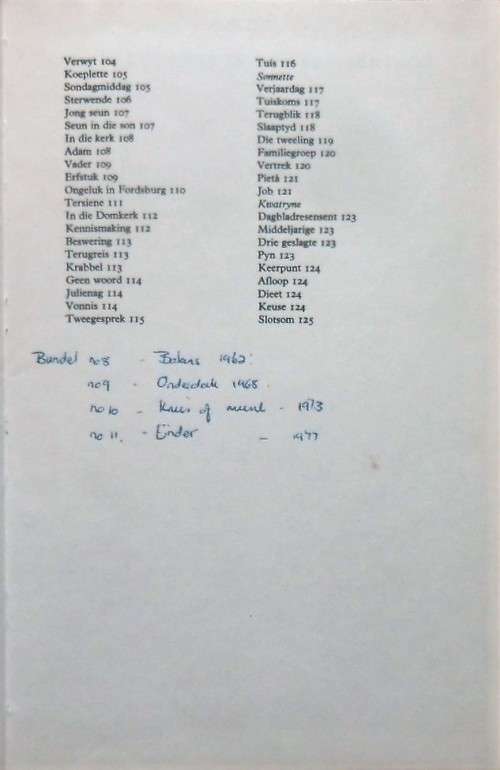 Verwyt 104
Koeplette 105
Sondagmiddag 105
Sterwende 106
Jong seun 107
Seun in die son 107
In die kerk 108
Adam 108
Vader 109
Erfstuk 109
Ongeluk in Fordsburg 110
Tersiene 111
In die Domkerk 112
Kennismaking 112
Beswering 113
Terugreis 113
Krabbel 113
Geen woord 114
Julienag 114
Vonnis 114
Tweegesprek 115
Tuis 116
Sonnette
Verjaardag 117
Tuiskoms 117
Terugblik 118
Slaaptyd 118
Die tweeling 119
Familiegroep 120
Vertrek 120
Pietà 121
Job 121
Kwatryne
Dagbladresensent 123
Middeljarige 123
Drie geslagte 123
Pyn 123
Keerpunt 124
Afloop 124
Dieet 124
Keuse 124
Slotsom 125
Bundel no 8 - Balans 1962.
no 9 - Onderdak 1968.
no 10 - Kruis of munt - 1973
no 11. - Einder - 1977